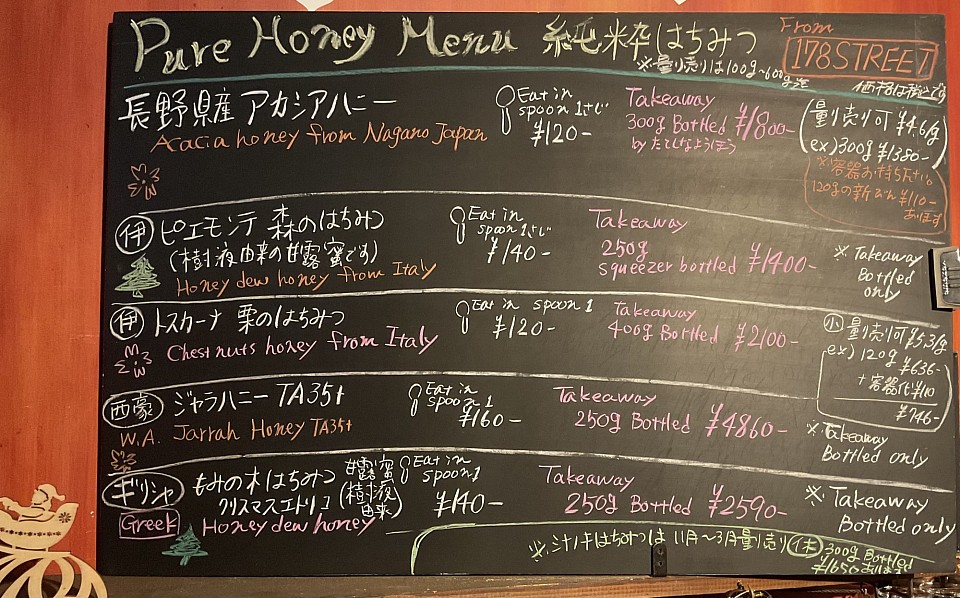 Pure Honey Menu 純粋はちみつ
From
178STREET
※量り売りは100g~600g迄
価格は税込です
長野県産 アカシアハニー
Acacia honey from Nagano Japan
Eat in
spoon 1さじ
¥120-
Takeaway
300g Bottled ¥1800-
by たてしなようほう
量り売り可 ¥4.6/g
ex) 300g ¥1380-
※容器お持ち下さい。
¥110-
伊 ピエモンテ 森のはちみつ
(樹液由来の甘露蜜です)
Honey dew honey from Italy
Eat in
spoon 1さじ
¥140-
Takeaway
250g
squeezer bottled ¥1400-
※Takeaway
Bottled
only
伊 トスカーナ 栗のはちみつ
Chestnuts honey from Italy
Eat in spoon 1
¥120-
Takeaway
400g Bottled ¥2100-
小 量り売り可 ¥5.3/g
ex) 120g ¥636-
+容器代¥110
¥746-
西豪 ジャラハニー TA35+
W.A. Jarrah Honey TA35+
Eat in
spoon 1
¥160-
Takeaway
250g Bottled ¥4860-
※Takeaway
Bottled only
ギリシャ もみの木はちみつ
クリスマスエトリコ
甘露蜜
(樹液
由来)
Greek Honey dew honey
Eat in
spoon 1
¥140-
Takeaway
250g Bottled ¥2590-
※Takeaway
Bottled only
はちみつは 11月~3月量り売り
300g Bottled
¥1650